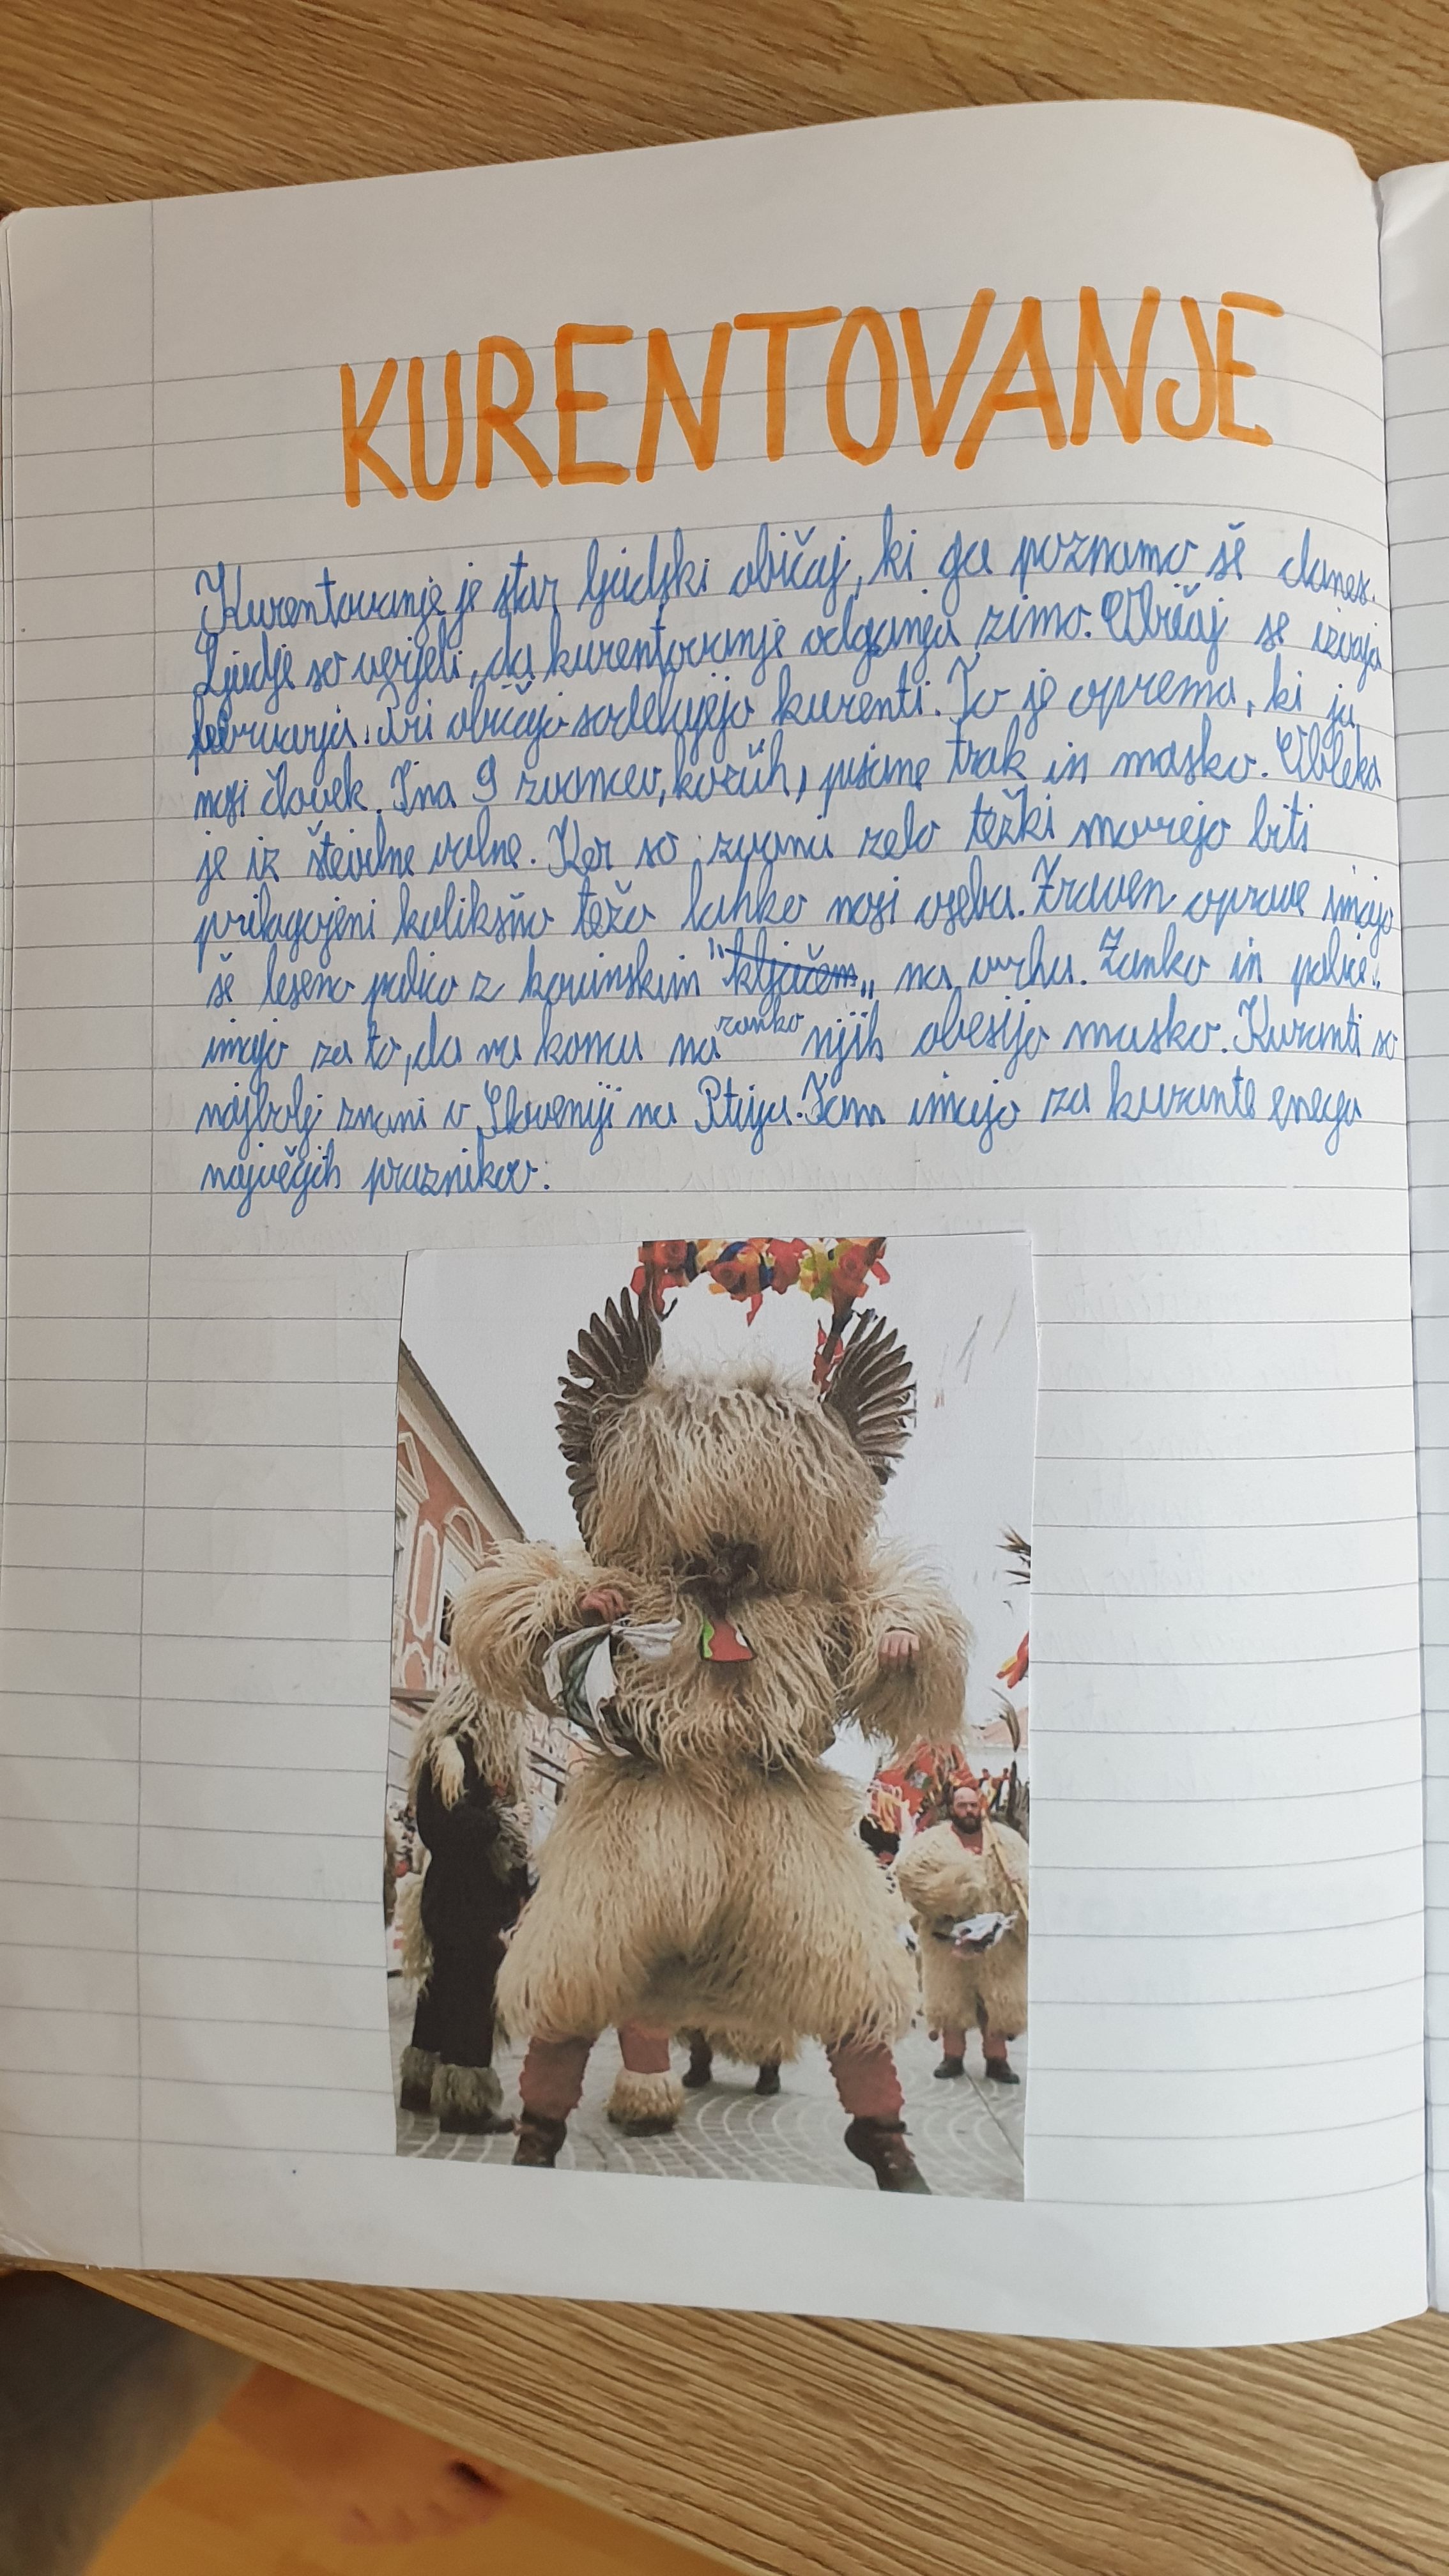 KURENTOVANJE
Kurentovanje je star ljudski običaj, ki ga poznamo še danes.
Ljudje so verjeli, da kurentovanje odganja zimo. Običaj se izvaja
februarja. Pri običaju sodelujejo kurenti. To je oprema, ki jo
nosi človek. Ima 9 zvoncev, kožuh, pisane trak in masko. Obleka
je iz volne. Ker so zvonci zelo težki morejo biti
prilagojeni kolikšno težo lahko nosi oseba. Zraven oprave imajo
še leseno palico z kovinskim "ključem" na vrhu. Zanko in palice
imajo za to, da na koncu na zanko njih obesijo masko. Kuranti so
najbolj znani v Sloveniji na Ptuju. Tam imajo za kurante enega
največjih praznikov.